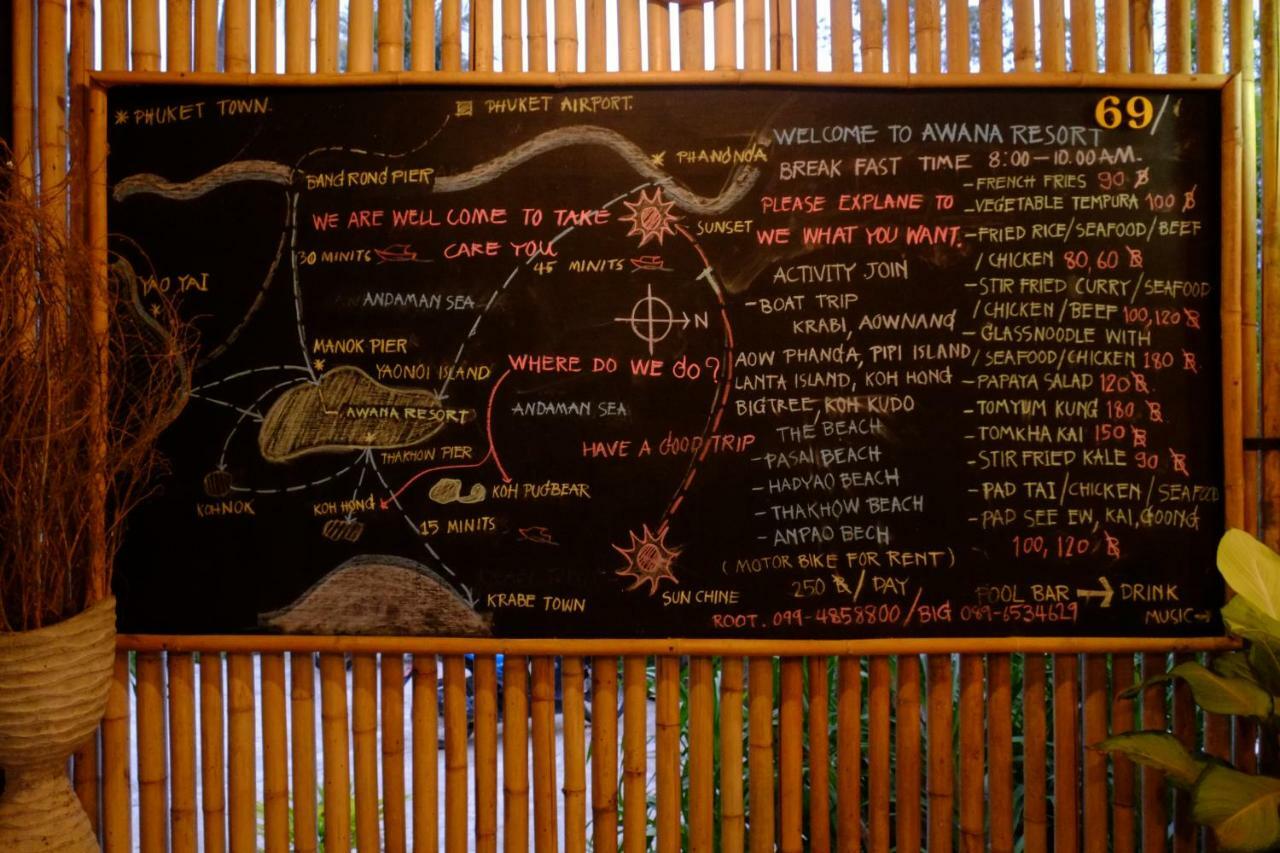 * PHUKET TOWN.
PHUKET AIRPORT.
BANGRONG PIER
PHANGNGA
WE ARE WELL COME TO TAKE
CARE YOU
SUNSET
30 MINITS
45 MINITS
YAO YAI
ANDAMAN SEA
N
MANOK PIER
YAONOI ISLAND
WHERE DO WE GO?
AWANA RESORT
ANDAMAN SEA
HAVE A GOOD TRIP
THAKHOW PIER
KOH NOK
KOH HONG
KOH PUGBEAR
15 MINITS
KRABE TOWN
SUN CHINE
69/
WELCOME TO AWANA RESORT
BREAK FAST TIME 8:00-10.00 AM.
PLEASE EXPLANE TO
WE WHAT YOU WANT.
ACTIVITY JOIN
-BOAT TRIP
KRABI, AOWNANG
AOW PHANGA, PIPI ISLAND
LANTA ISLAND, KOH HONG
BIGTREE, KOH KUDO
THE BEACH
-PASAI BEACH
-HADYAO BEACH
-THAKHOW BEACH
-ANPAO BECH
(MOTOR BIKE FOR RENT)
250 ฿/DAY
ROOT. 099-4858800/BIG 089-6534629
-FRENCH FRIES 90 ฿
-VEGETABLE TEMPURA 100 ฿
-FRIED RICE/SEAFOOD/BEEF
/CHICKEN 80,60 ฿
-STIR FRIED CURRY/SEAFOOD
/CHICKEN/BEEF 100,120 ฿
-GLASSNOODLE WITH
/SEAFOOD/CHICKEN 180 ฿.
-PAPAYA SALAD 120 ฿.
-TOMYUM KUNG 180 ฿
-TOMKHA KAI 150 ฿
-STIR FRIED KALE 90 ฿
-PAD TAI/CHICKEN/SEAFOOD
-PAD SEE EW, KAI, GOONG
100, 120 ฿
POOL BAR → DRINK
MUSIC→